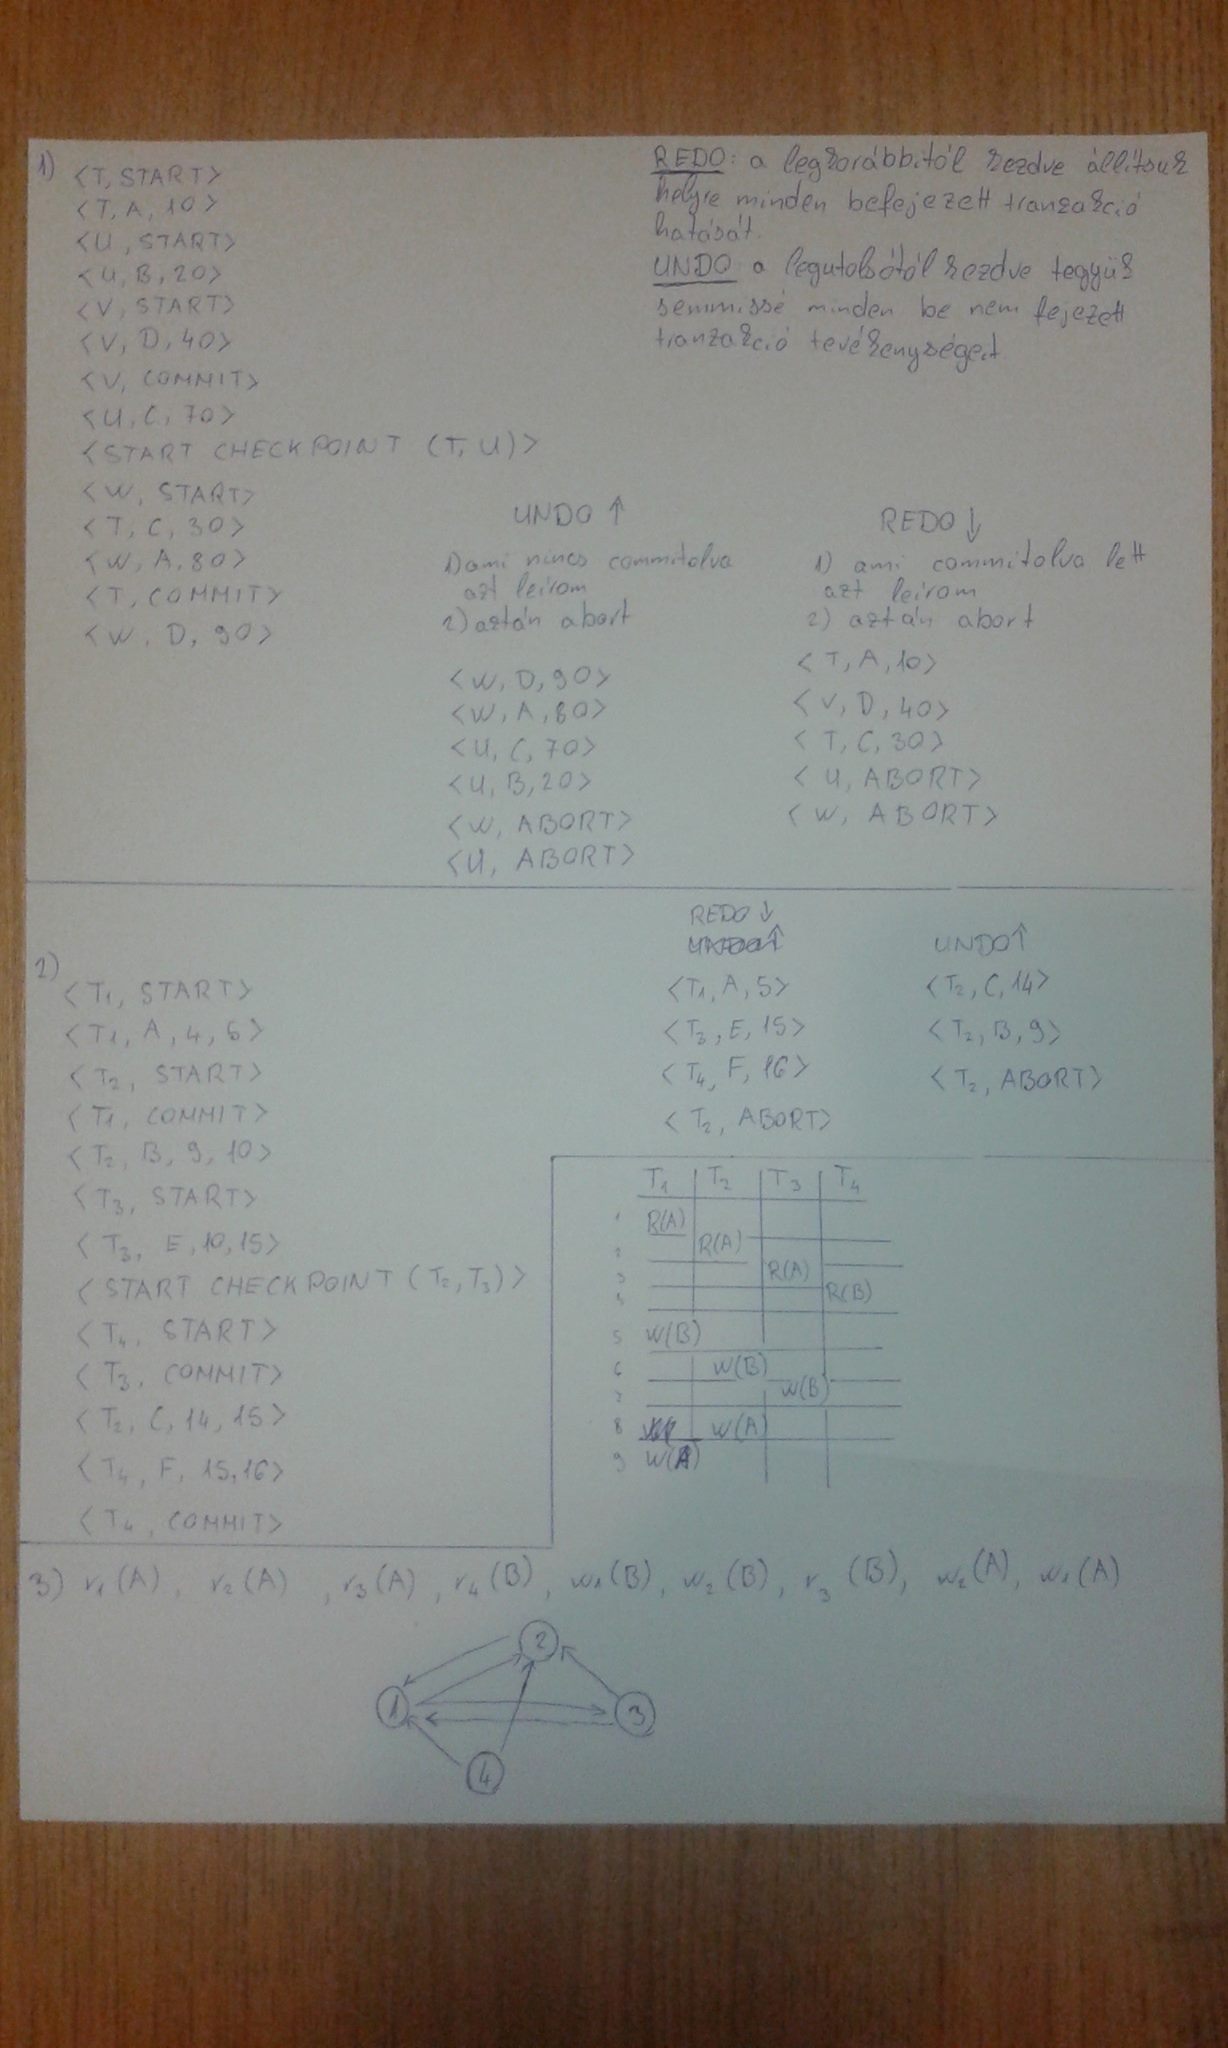 1)
<T, START>
<T, A, 10>
<U, START>
<U, B, 20>
<V, START>
<V, D, 40>
<V, COMMIT>
<U, C, 70>
<START CHECKPOINT (T, U)>
<W, START>
<T, C, 30>
<W, A, 80>
<T, COMMIT>
<W, D, 90>
REDO: a legkorábbitól kezdve állítsuk
helyre minden befejezett tranzakció
hatását.
UNDO a legutolsótól kezdve tegyük
semmissé minden be nem fejezett
tranzakció tevékenységeit
UNDO ↑
1) ami nincs commitolva
azt leírom
2) aztán abort
<W, D, 90>
<W, A, 80>
<U, C, 70>
<U, B, 20>
<W, ABORT>
<U, ABORT>
REDO ↓
1) ami commitolva lett
azt leírom
2) aztán abort
<T, A, 10>
<V, D, 40>
<T, C, 30>
<U, ABORT>
<W, ABORT>
2)
<T1, START>
<T1, A, 4, 5>
<T2, START>
<T1, COMMIT>
<T2, B, 9, 10>
<T3, START>
<T3, E, 10, 15>
<START CHECKPOINT (T2, T3)>
<T4, START>
<T3, COMMIT>
<T2, C, 14, 15>
<T4, F, 15, 16>
<T4, COMMIT>
REDO ↓
UNDO ↑
<T1, A, 5>
<T3, E, 15>
<T4, F, 16>
<T2, ABORT>
UNDO ↑
<T2, C, 14>
<T2, B, 9>
<T2, ABORT>
T1 T2 T3 T4
1 R(A)
2 R(A)
3 R(A)
4 R(B)
5 W(B)
6 W(B)
7 W(B)
8 W(A)
9 W(A)
3) r1(A), r2(A), r3(A), r4(B), w1(B), w2(B), r3(B), w2(A), w1(A)
2
1
3
4